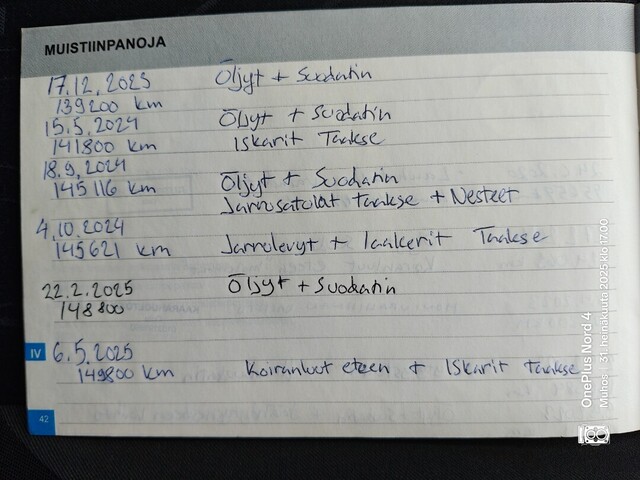 MUISTIINPANOJA
17.12.2023 Öljyt + Suodatin
139200 km
15.5.2024 Öljyt + Suodatin
141800 km Iskarit Taakse
18.9.2024
145116 km Öljyt + Suodatin
Jarrusatulat taakse + Nesteet
4.10.2024
145621 km Jarrulevyt + laakerit Taakse
22.2.2025 Öljyt + Suodatin
148800
IV 6.5.2025
149800 km Koiranluut eteen + Iskarit taakse
42
OnePlus Nord 4
Muhos | 31 heinäkuuta 2025 klo 17.00